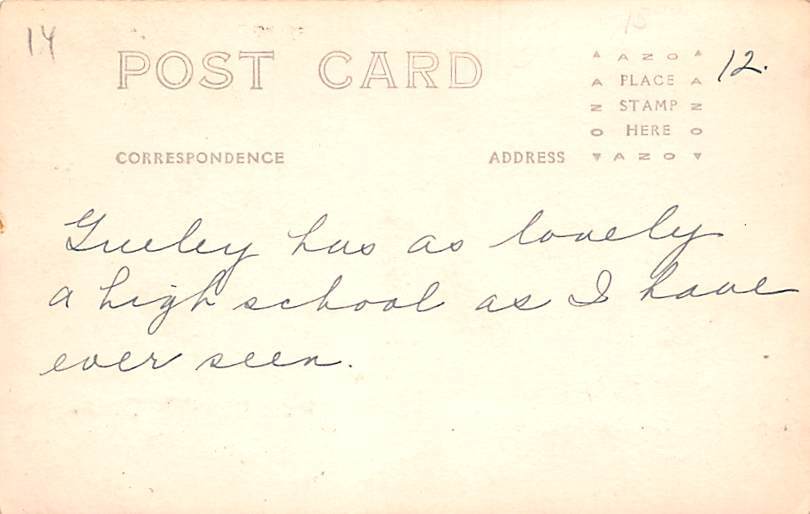 14
15
POST CARD
12.
AZO
PLACE
STAMP
HERE
AZO
CORRESPONDENCE
ADDRESS
Greeley has as lovely
a high school as I have
ever seen.